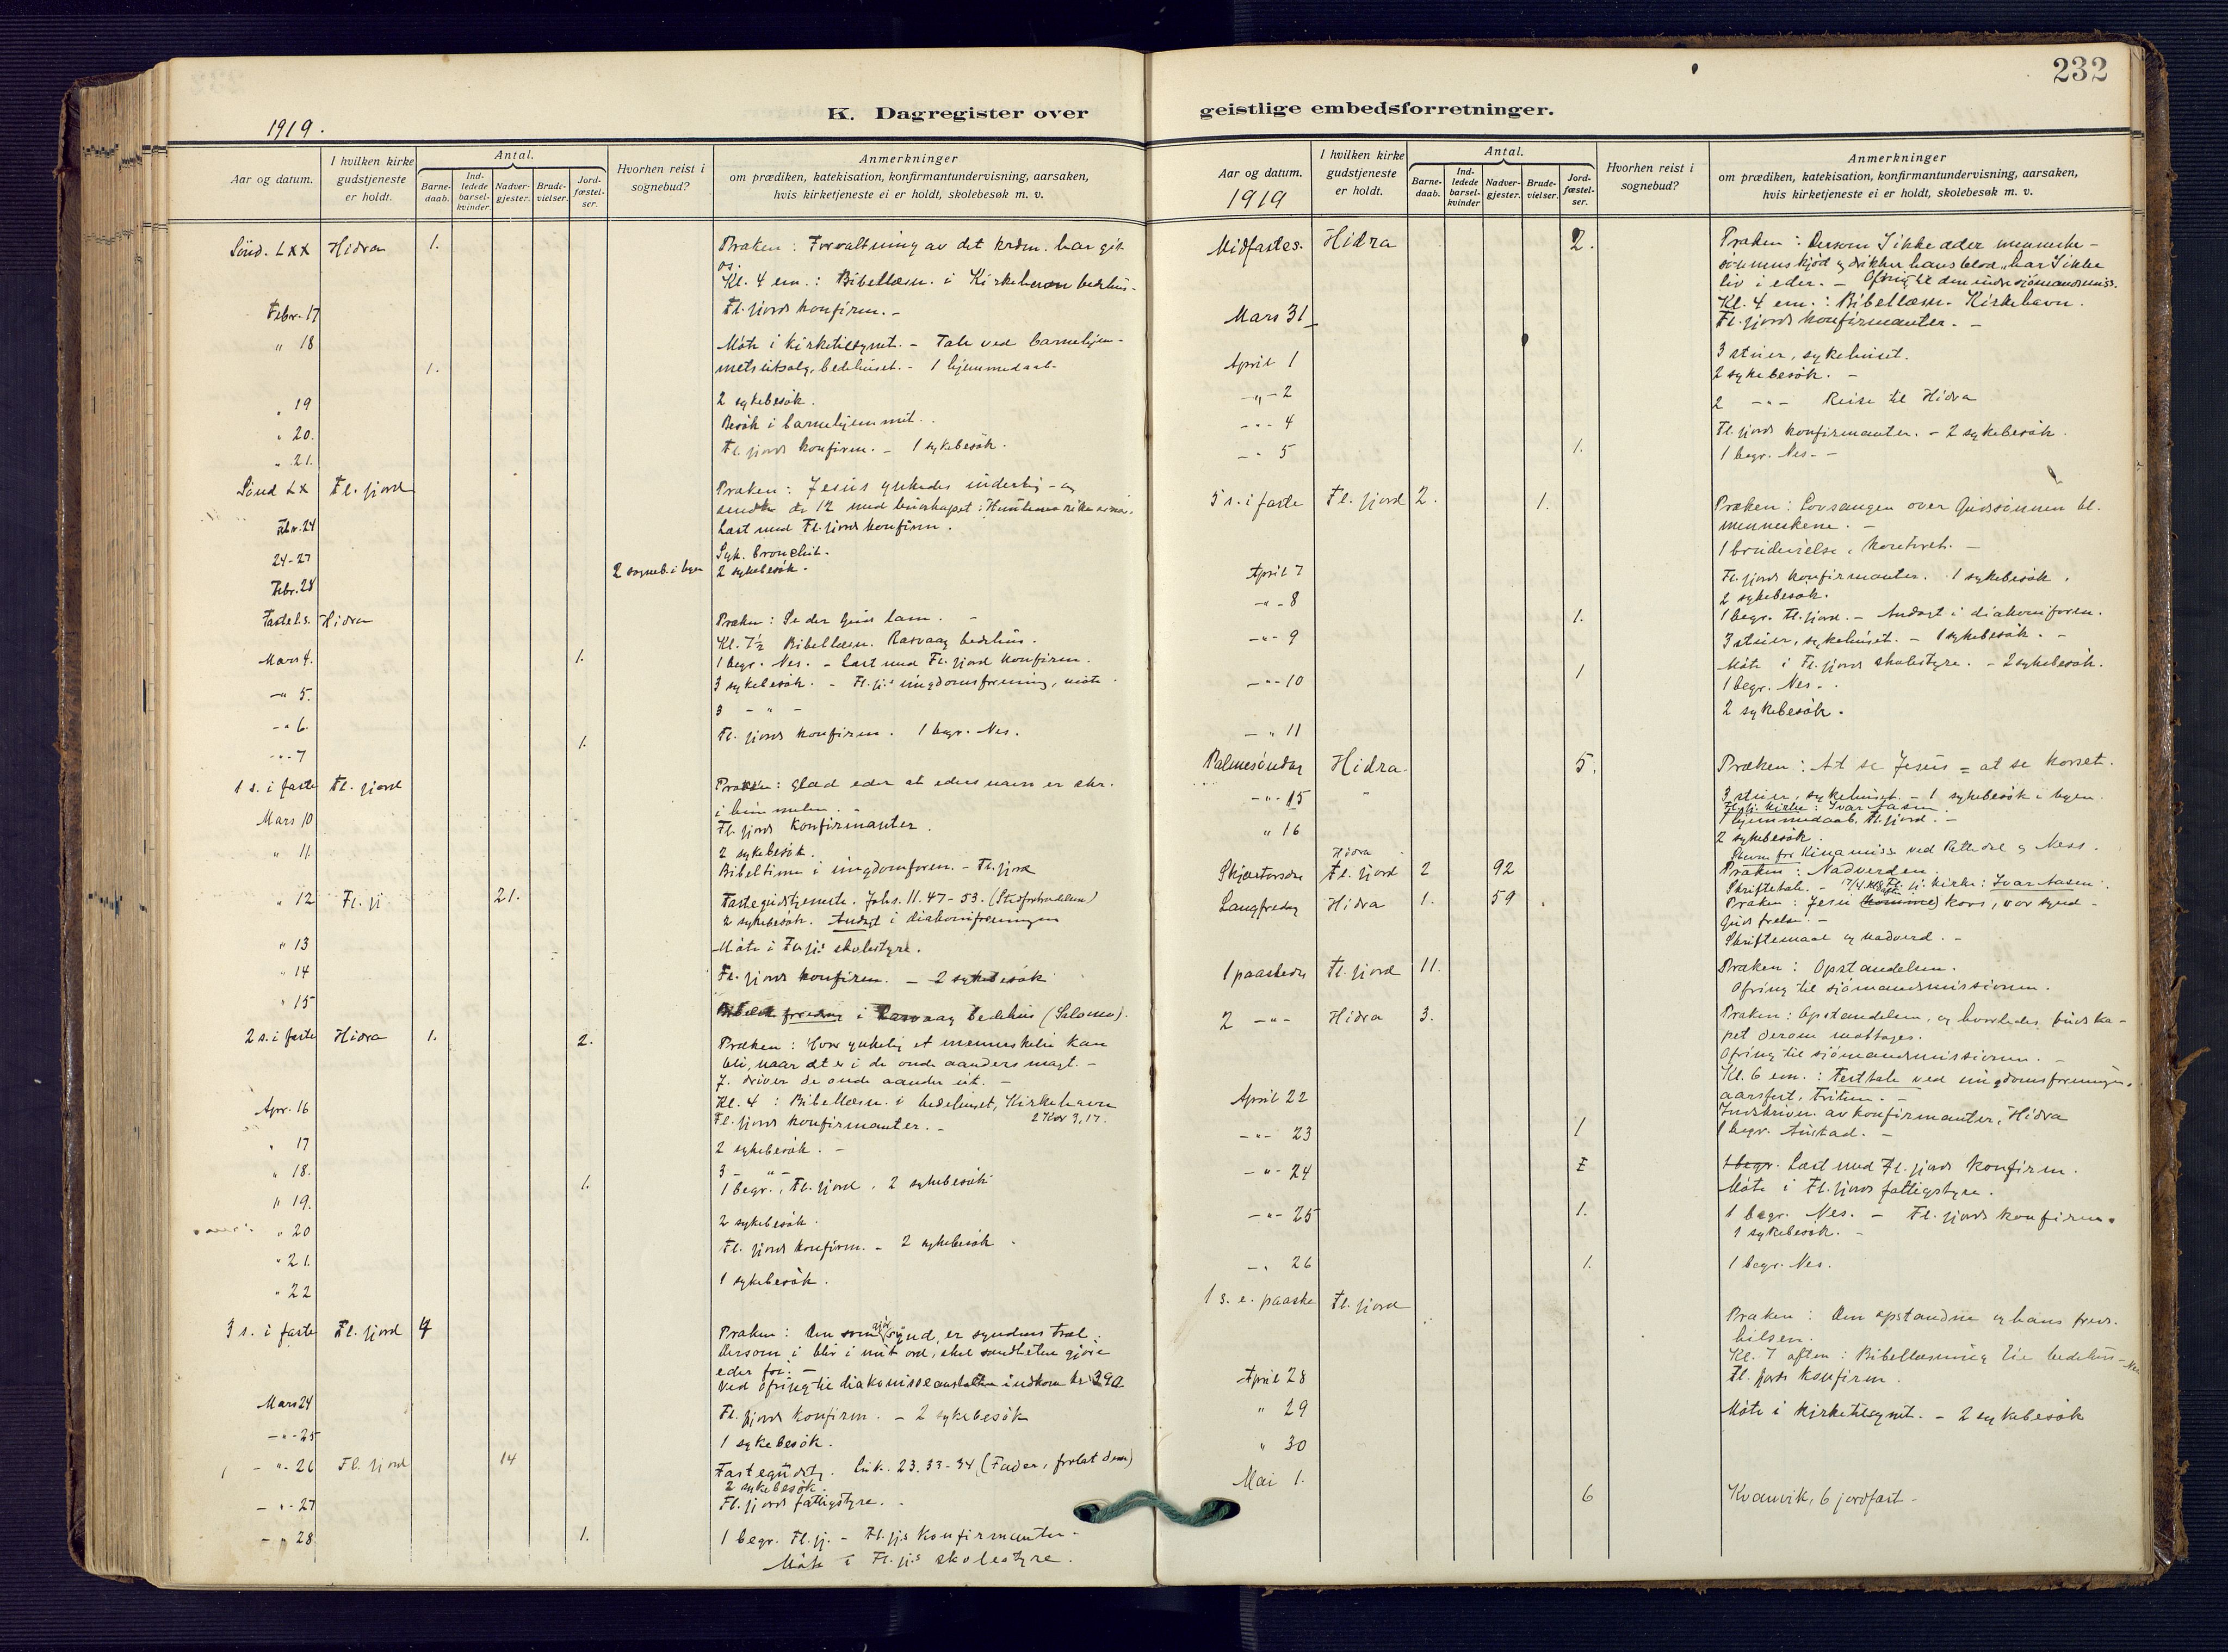 232
K. Dagregister over
geistlige embedsforretninger.
1919.
Aar og datum.
I hvilken kirke gudstjeneste er holdt.
Antal.
Barne-daab.
Ind-ledede barsel-kvinder
Nadver-gjester.
Brude-vielser.
Jord-fæstel-ser.
Hvorhen reist i sognebud?
Anmerkninger
om prædiken, katekisation, konfirmantundervisning, aarsaken,
hvis kirketjeneste ei er holdt, skolebesøk m. v.
Sönd. LXX Hidra 1. Præken: Forvaltning av det krdm. har git
os.
Kl. 4 em.: Bibellæsn. i Kirkehavn bedehus.
Febr. 17 Fl. fjords konfirm. -
" 18 Möte i kirketilsynet. - Tale ved barnehjem-
1. metsutsalg, bedehuset. - 1 hjemmedaab.
" 19 2 sykebesök.
" 20. Besök i barnehjemmet.
" 21. Fl. fjords konfirm. - 1 sykebesök.
Sönd LX Fl. fjord Præken: Jesus ynkedes inderlig - og
sendte de 12 med budskapet: Himlenes rike er nær.
Febr. 24 Læst med Fl. fjords konfirm.
24-27 Syk. bronchit.
Febr. 28 2 sogneb. i byen 2 sykebesök.
Fastels. Hidra Præken: Se der Guds lam. -
Kl. 7½ Bibellæsn. Rasvaag bedehus.
Mars 4. 1. 1 begr. Nes. - Læst med Fl. fjord konfirm.
-"- 5. 3 sykebesök. - Fl. fj.s ungdomsforening, möte.
-"- 6. 3 - " -
-"- 7 1. Fl. fjords konfirm. 1 begr. Nes.
1 s. i faste Fl. fjord Præken: Glæd eder at eders navn er skr.
i himmelen. -
Mars 10 Fl. fjords konfirmanter.
" 11. 2 sykebesök.
Bibeltime i ungdomsforen. - Fl. fjord
" 12 Fl. fj 21. Fastegudstjeneste. Johs. 11. 47-53. (Stedfortrædelsen)
2 sykebesök. Andagt i diakoniforeningen
" 13 Möte i Fl. fj.s skolestyre.
" 14 Fl. fjords konfirm. - 2 sykebesök
" 15 i Rasvaag bedehus (Salomo).
2 s. i faste Hidra 1. 2. Præken: Hvor ynkelig et menneske kan
bli, naar det er i de onde aanders magt. -
J. driver de onde aander ut. -
Kl. 4: Bibellæsn. i bedehuset, Kirkehavn
2 Kor 3,17.
Apr. 16 Fl. fjords konfirmanter. -
" 17 2 sykebesök. -
" 18. 3 - " -
" 19. 1. 1 begr., Fl. fjord. 2 sykebesök
" 20 2 sykebesök.
" 21. Fl. fjords konfirm. - 2 sykebesök.
" 22 1 sykebesök.
3 s. i faste Fl. fjord 4 Præken: Den som gjör synd, er syndens træl;
Dersom i blir i mit ord, skal sandheten gjöre
eder fri. -
Ved ofring til diakonisseanstalten indkom kr 390
Mars 24 Fl. fjords konfirm. - 2 sykebesök
-"- 25 1 sykebesök.
-"- 26 Fl. fjord 14 Fastegudstj. Luk. 23. 33-34 (Fader, forlat dem)
2 sykebesök.
-"- 27 Fl. fjords fattigstyre. -
-"- 28 1. 1 begr. Fl. fj. - Fl. fj.s konfirmanter.
Möte i Fl. fj.s skolestyre.
Aar og datum.
1919
I hvilken kirke gudstjeneste er holdt.
Antal.
Barne-daab.
Ind-ledede barsel-kvinder
Nadver-gjester.
Brude-vielser.
Jord-fæstel-ser.
Hvorhen reist i sognebud?
Anmerkninger
om prædiken, katekisation, konfirmantundervisning, aarsaken,
hvis kirketjeneste ei er holdt, skolebesøk m. v.
Midfastes. Hidra 2. Præken: Dersom I ikke æder menneske-
sönnens kjöd og drikker hans blod, har I ikke
liv i eder. - Ofring til den indre sjömandsmiss.
Kl. 4 em.: Bibellæsn. Kirkehavn.
Mars 31 Fl. fjords konfirmanter. -
April 1 3 stuer, sykehuset.
2 sykebesök. -
-"- 2 2 -"- Reise til Hidra
-"- 4 Fl. fjords konfirmanter. - 2 sykebesök.
-"- 5 1. 1 begr. Nes. -
5 s. i faste Fl. fjord 2. 1. Præken: Lovsangen over Gudssönnen bl.
menneskene. -
1 brudevielse, kontoret. -
April 7 Fl. fjords konfirmanter. 1 sykebesök.
-"- 8 2 sykebesök.
1. 1 begr. Fl. fjord. - Andagt i diakoniforen.
-"- 9 3 stuer, sykehuset. - 1 sykebesök. -
Möte i Fl. fjords skolestyre. - 2 sykebesök.
-"- 10 1 1 begr. Nes. -
-"- 11 2 sykebesök.
Palmesöndag Hidra 5. Præken: At se Jesus = at se korset.
-"- 15 3 stuer, sykehuset. - 1 sykebesök i byen.
Fl. fj. kirke: Ivar Aasen
1 hjemmedaab, Fl. fjord. -
" 16 2 sykebesök.
Stevne for Kinamiss. ved Pettedal og Ness.
Hidra
Skjærtorsdag Fl. fjord 2 92 Præken: Nadverden
Skriftetale. - 17/4 Fl. fj. kirke: Ivar Aasen.
Langfredag Hidra 1. 59 Præken: Jesu kors, vor synd -
Guds frelse. -
Skriftemaal og nadverd. -
1 paaskedag Fl. fjord 11. Præken: Opstandelsen.
Ofring til sjömandsmissionen.
2 -"- Hidra 3. Præken: Opstandelsen, og hvorledes budska-
pet derom mottages.
Ofring til sjömandsmissionen. -
Kl. 6 em.: Festtale ved ungdomsforeningens
aarsfest, Fritun. -
April 22 Indskriven. av konfirmanter, Hidra
-"- 23 1 1 begr. Austad. -
-"- 24 1 begr. Læst med Fl. fjords konfirm.
Möte i Fl. fjords fattigstyre.
-"- 25 1. 1 begr. Nes. - Fl. fjords konfirm.
1 sykebesök. -
-"- 26 1. 1 begr. Nes.
1 s. e. paaske Fl. fjord Præken: Den opstandne og hans freds-
hilsen.
Kl. 7 aften: Bibellæsning lie bedehus - Nes
April 28 Fl. fjords konfirm.
" 29 Möte i kirketilsynet. - 2 sykebesök
" 30
Mai 1. 6 Kvanvik, 6 jordfæst -